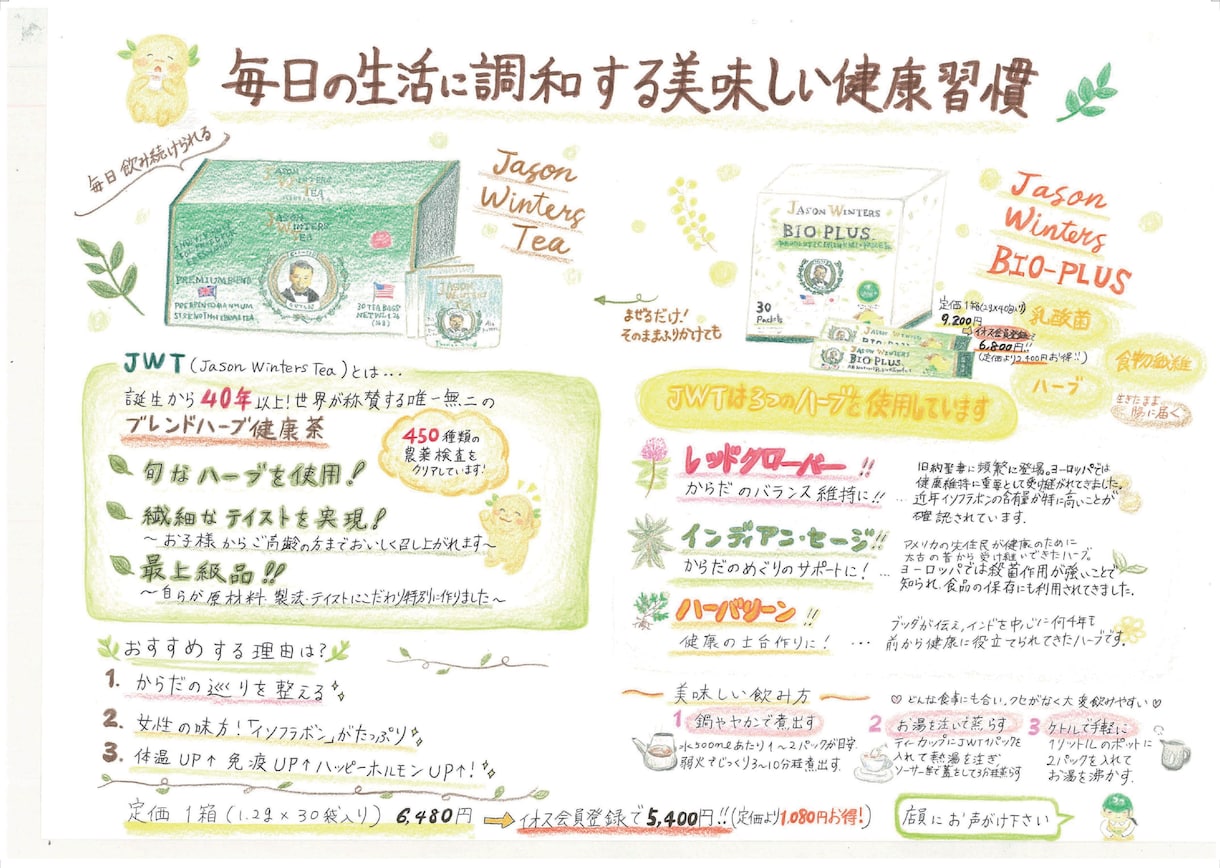 毎日の生活に調和する美味しい健康習慣
毎日飲み続けられる
JASON
WINTERS
TEA
JASON
WINTERS
TEA
PREMIUM BLEND
30 TEA BAGS
Jason
Winters
Tea
まぜるだけ!
そのままふりかけても
JASON WINTERS
BIO PLUS
30
Packets
JASON WINTERS
BIO PLUS
Jason
Winters
BIO-PLUS
定価1箱
9,200円
⇨イオス会員登録で
6,800円!!
(定価より2,400円お得!!)
乳酸菌
食物繊維
ハーブ
生きたまま
腸に届く
JWT (Jason Winters Tea)とは...
誕生から40年以上!世界が称賛する唯一無二の
ブレンドハーブ健康茶
450種類の
農薬検査を
クリアしています!
旬なハーブを使用!
繊細なテイストを実現!
~お子様からご高齢の方までおいしく召し上がれます~
最上級品!!
~自らが原材料・製法・テイストにこだわり特別に作りました~
おすすめする理由は?
1. からだの巡りを整える
2. 女性の味方!「イソフラボン」がたっぷり
3. 体温UP↑免疫UP↑ハッピーホルモンUP↑!
JWTは3つのハーブを使用しています
レッドクローバー!!
からだのバランス維持に!!
旧約聖書に頻繁に登場。ヨーロッパでは
健康維持に重要として受け継がれてきました。
...近年イソフラボンの含有量が特に高いことが
確認されています。
インディアン・セージ!!
からだのめぐりのサポートに!
アメリカの先住民が健康のために
太古の昔から受け継いできたハーブ。
...ヨーロッパでは殺菌作用が強いことで
知られ、食品の保存にも利用されてきました。
ハーバリーン!!
健康の土台作りに!
ブッダが伝え、インドを中心に何千年も
...前から健康に役立てられてきたハーブです。
美味しい飲み方
♡どんな食事にも合い、クセがなく大変飲みやすい♡
1 鍋やヤカンで煮出す
水500mlあたり1~2パックが目安
弱火でじっくり3~10分程煮出す。
2 お湯を注いで蒸らす
ティーカップにJWT1パックを
入れて熱湯を注ぎ
ソーサー等で蓋をして3分程蒸らす
3 ケトルで手軽に
1リットルのポットに
2パックを入れて
お湯を沸かす。
定価 1箱(1.2g×30袋入り) 6,480円⇨イオス会員登録で5,400円!!(定価より1,080円お得!)
店員にお声がけ下さい